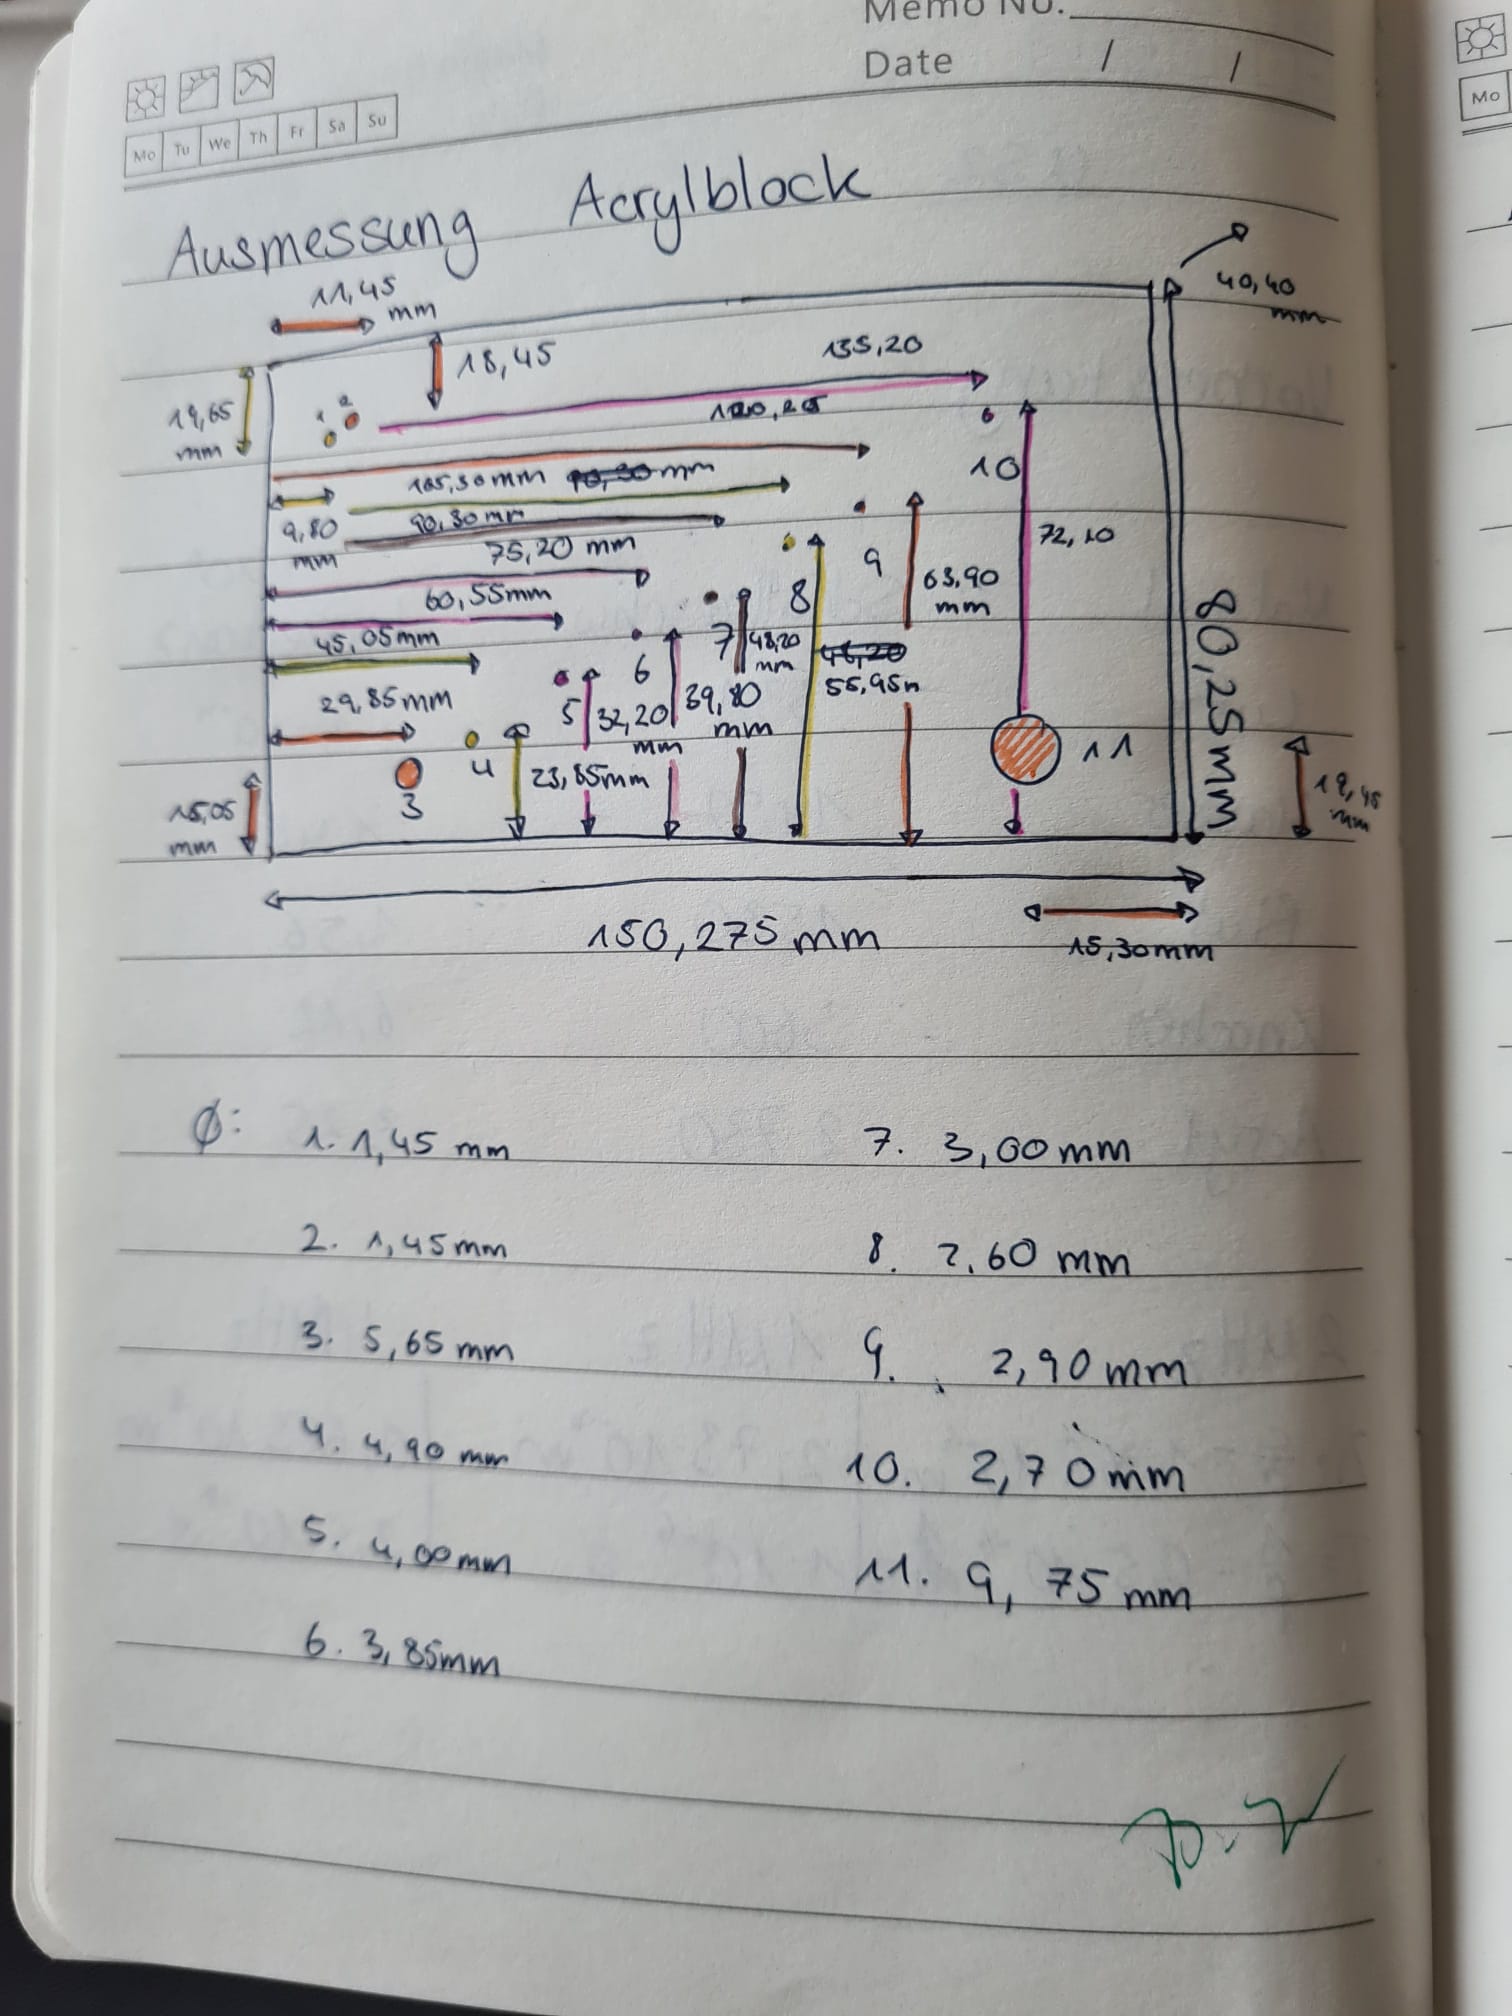 Memo No.
Date / /
Mo Tu We Th Fr Sa Su
Mo
Ausmessung Acrylblock
11,45
mm
40,40
mm
18,45
135,20
19,65
mm
1 2
120,25
10
105,30mm
mm
9,80
mm
90,30mm
75,20 mm
72,10
9
63,90
mm
60,55mm
8
45,05mm
7
48,20
mm
6
55,95
29,85mm
5
32,20
mm
39,80
mm
80,25mm
4
23,85mm
11
3
15,05
mm
mm
150,275mm
15,30mm
Ø:
1. 1,45 mm
2. 1,45mm
3. 5,65 mm
4. 4,90 mm
5. 4,00mm
6. 3,85mm
7. 3,00mm
8. 2,60 mm
9. 2,90mm
10. 2,70mm
11. 9,75mm